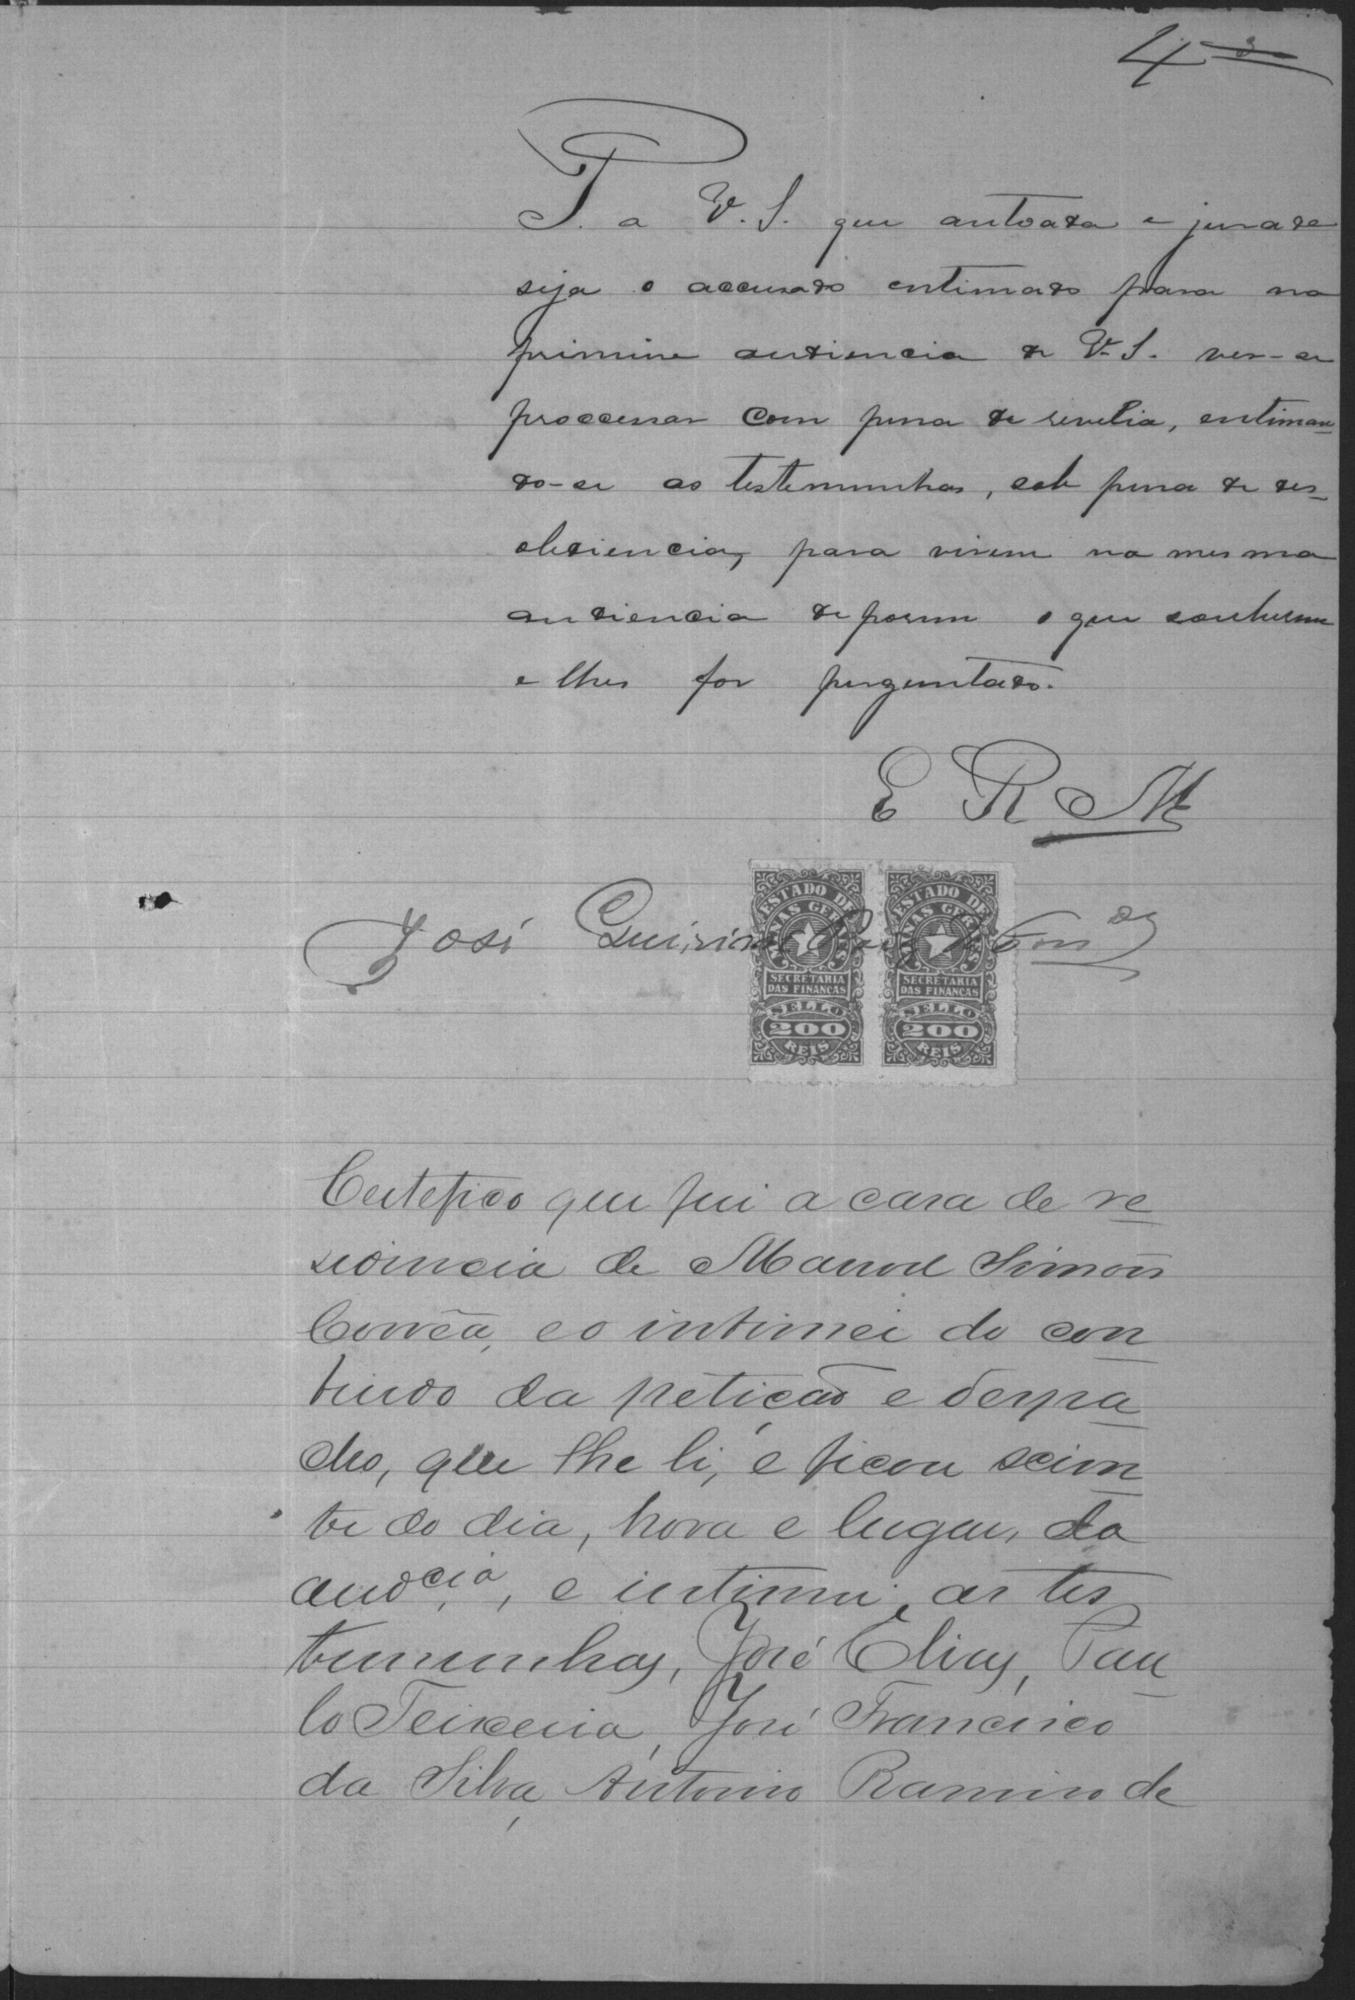 4
P. a V. S. que autoada e jurada
seja o accusado entimado para na
primeira audiencia de V. S. ver-se
processar com pena de revelia, entiman
do-se as testemunhas, sob pena de des-
obediencia, para virem na mesma
audiencia deporem o que souberem
e lhes for perguntado.
E R M
José Quirino
ESTADO DE MINAS GERAES
SECRETARIA DAS FINANÇAS
SELLO
200
REIS
ESTADO DE MINAS GERAES
SECRETARIA DAS FINANÇAS
SELLO
200
REIS
Certefico que fui a casa de re
sidencia de Manoel Simões
Corrêa, e o intimei do con
teudo da petição e despa
cho, que lhe li, e ficou scien
te do dia, hora e lugar, da
audcia, e intimei as tes
temunhas, José Elias, Pau
lo Teixeira, José Francisco
da Silva, Antonio Ramiro de